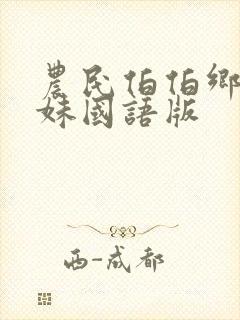 農民伯伯鄉
妹國語版
西-成都